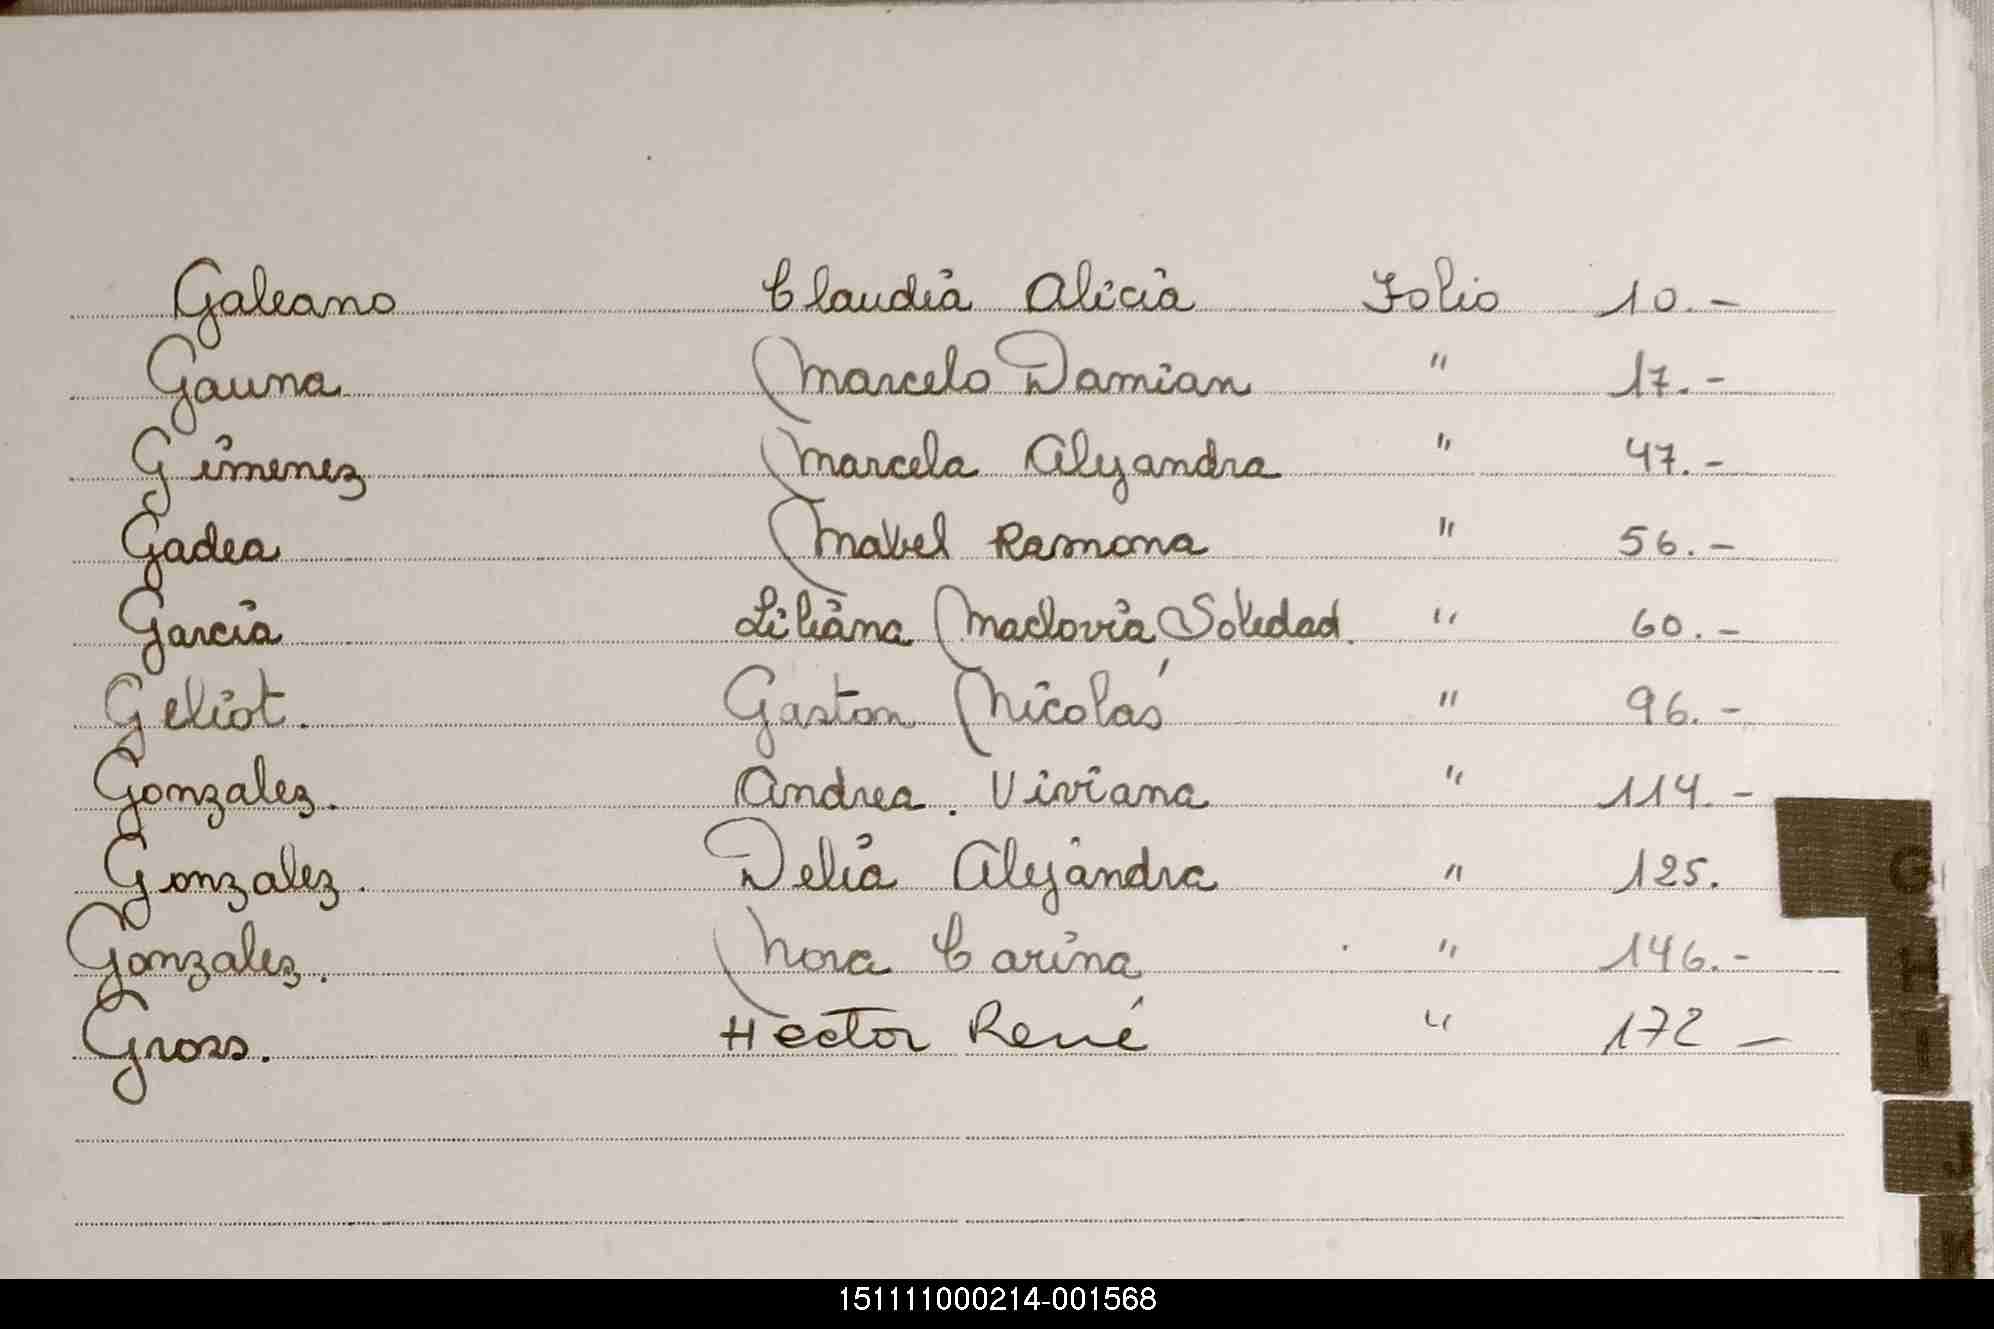 Galeano Claudia Alicia Folio 10.-
Gauna Marcelo Damian " 17.-
Gimenez Marcela Alejandra " 47.-
Gadea Mabel Ramona " 56.-
Garcia Liliana Maclovia Soledad. " 60.-
Geliot. Gaston Nicolás " 96.-
Gonzalez. Andrea. Viviana " 114.-
Gonzalez. Delia Alejandra " 125.
Gonzalez. Nora Carina " 146.-
Gross. Hector René " 172 -
G
H
I
J
151111000214-001568